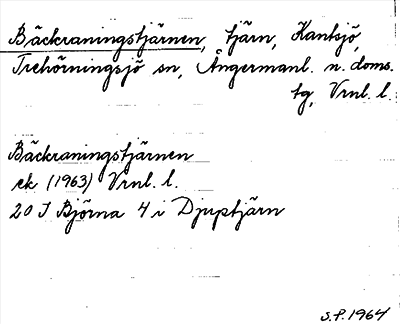 Bäckraningstjärnen, tjärn, Kantsjö,
Trehörningsjö sn, Ångermanl. n. doms.
tg, Vrnl. l.
Bäckraningstjärnen
ek (1963) Vrnl. l.
20 J Björna 4 i Djuptjärn
S.P. 1964